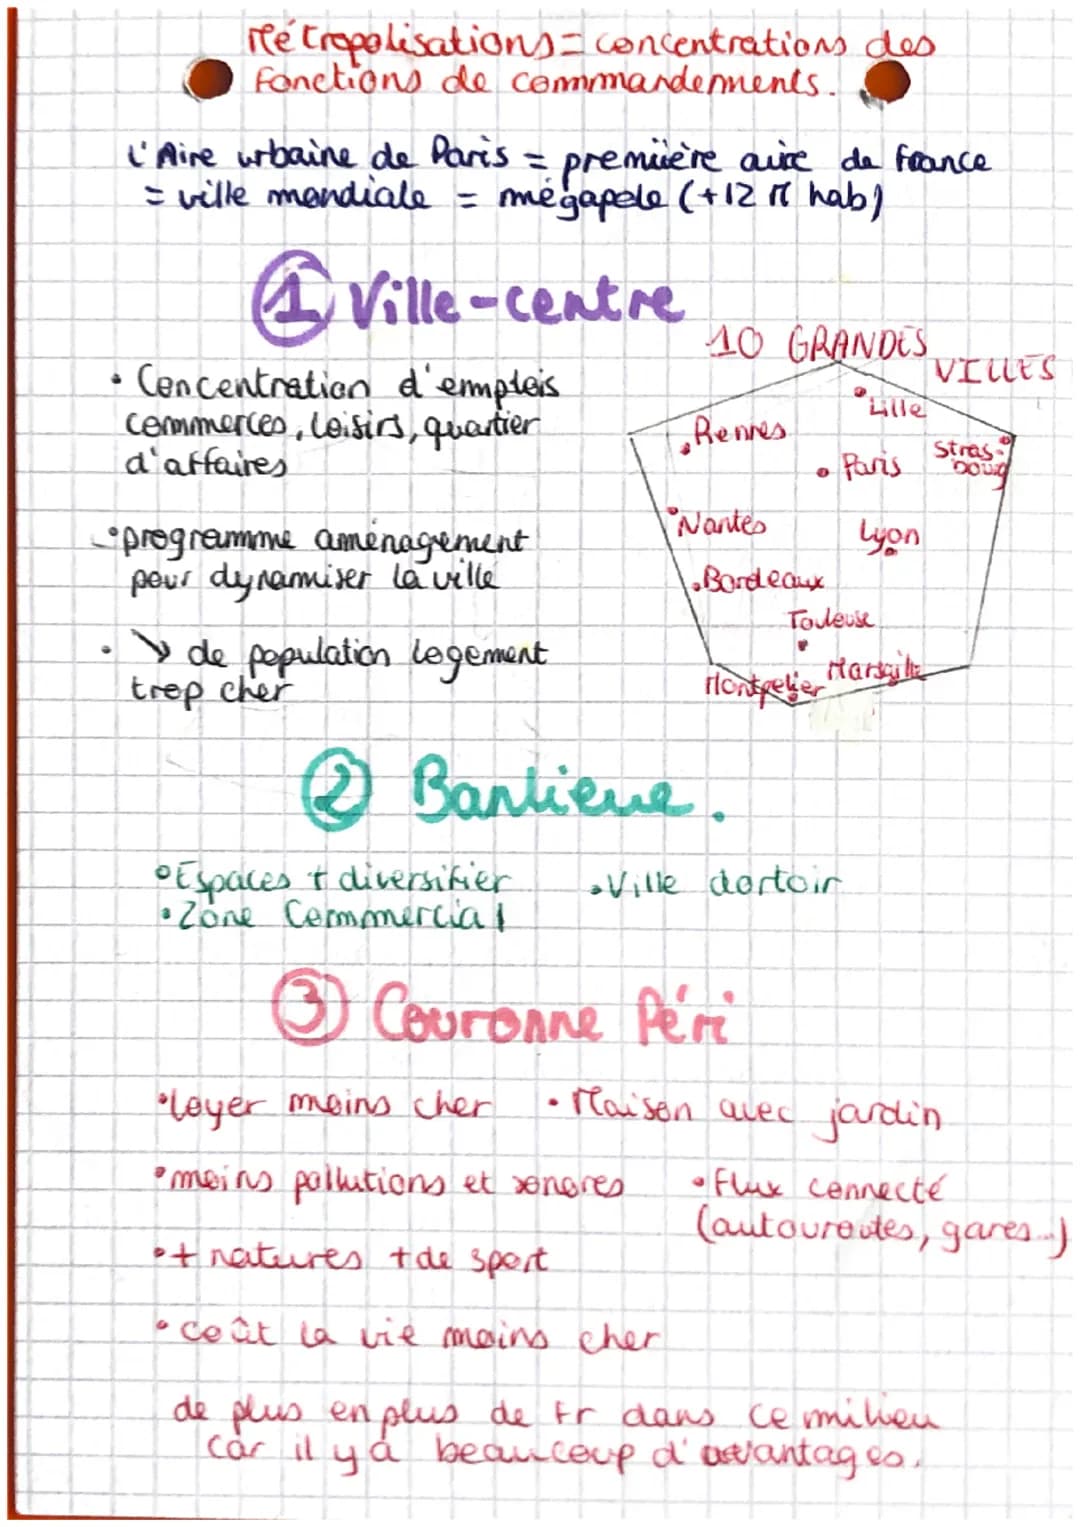 Métropolisations = concentrations des
fonctions de commmandemments.
L'Aire urbaine de Paris = premiière aire de france
= ville mondiale = mégapole (+12 M hab)
① Ville-centre
• Concentration d'emmplois
commerces, loisirs, quartier
d'affaires
• programme aménagement
pour dynamiser la ville
• ↘ de population logement
trop cher
10 GRANDES
VILLES
Lille
Rennes
Stras-
boug
Paris
Nantes
Lyon
Bordeaux
Toulouse
Marseille
Montpelier
② Banlieue.
• Espaces + diversifier
• Ville dortoir
• Zone Commmercial
③ Couronne Péri
• loyer moins cher • Maison avec jardin
• moins pollutions et sonores
• Flux connecté
(autouroutes, gares...)
• + natures + de sport
• coût la vie moins cher
de plus en plus de Fr dans ce milieu
car il y a beaucoup d'avantages.